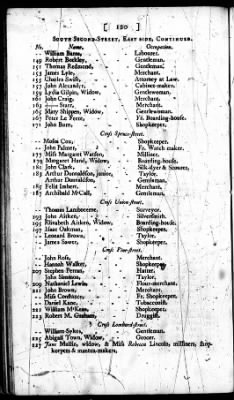 ( 120 )
South Second-Street, East side, Continued.
No. Name. Occupation.
-- William Burns, -- Labourer.
149 Robert Barkley, -- Gentleman.
151 Thomas Redmond, -- Gentleman.
153 James Lyle, -- Merchant.
155 Charles Swift, -- Attorney at Law.
157 John Alexander, -- Cabinet-maker.
159 Lydia Gilpin, Widow, -- Gentlewoman.
161 John Craig, -- Merchant.
163 -- Starr, -- Merchant.
165 Mary Sharp, Widow, -- Gentlewoman.
167 Peter Le Ferre, -- Fr. Boarding-house.
171 John Barr, -- Shopkeeper.
Cross Spruce-street.
-- Moses Cox, -- Shopkeeper.
-- John Palmer, -- Fr. Watch maker.
177 Miss Margaret Watson, -- Milliner.
179 Margaret Hund, Widow, -- Boarding-house.
181 John Clark, -- Silk-dyer & Scourer.
183 Arthur Donnaldson, junior, -- Taylor.
-- Arthur Donnaldson, -- Gentleman.
185 Felix Imbert, -- Merchant.
187 Archibald M·Call, -- Gentleman.
Cross Union-street.
-- Thomas Lambourne, -- Surveyor.
193 John Aitken, -- Silversmith.
195 Elisabeth Aitken, Widow, -- Boarding-house.
197 Isaac Oakman, -- Shopkeeper.
-- Leonard Brown, -- Taylor.
-- James Sower, -- Shopkeeper.
Cross Pine-street.
-- John Rose, -- Merchant.
-- Hannah Walker, -- Shopkeeper
209 Stephen Ferran, -- Hatter,
-- John Simmon, -- Taylor,
209 Nathaniel Lewis, -- Flour-merchant.
211 John Brown, -- Merchant.
-- Miss Constance, -- Fr. Shopkeeper.
-- Daniel Kane, -- Tobacconist.
221 William M·Kean, -- Shopkeeper.
223 Robert M. Graham, -- Druggist.
Cross Lombard-street.
-- William Sykes, -- Gentleman.
225 Abigail Town, Widow, -- Grocer.
227 Jane Mullin, widow, & Miss Rebecca Lincoln, milliners, shop-
keepers & mantua-makers,